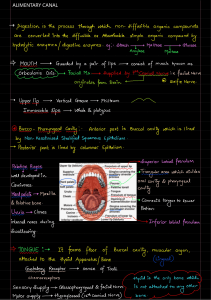 ALIMENTARY CANAL
Digestion is the process through which non diffusible organic compounds
are converted into the diffusible or absorbable simple organic compound by
hydrolytic enzymes / digestive enzymes eg: Starch Maltose
MOUTH → Guarded by a pair of lips → consist of muscle known as
Orbicularis Oris → Facial Me → Supplied by 7th Cranial nerve ie facial nerve
originates from Brain
Upper lip → Vertical Groove → Philtrum
Immovable lips → Whale & platypus
Bucco-Pharyngeal Cavity: Anterior part is Buccal cavity which is lined
by Non Keratinised Stratified Squamous epithelium
Posterior part is lined by columnar Epithelium
Palatine Rugae
well developed in
Carnivores
Hard palate → Maxilla
& Palatine bone
Uvula → Closes
internal nares during
swallowing
Superior labial frenulum
Triangular area which divides
& pharyngeal
cavity
Connects tongue to lower
Inferior labial frenulum
TONGUE : → It forms floor of Buccal cavity, muscular organ,
attached to the Hyoid Apparatus/Bone
Gustatory Receptor → sense of taste
Sensory supply → Glossopharyngeal & facial nerve
Motor supply → Hypoglossal (12th Cranial nerve)
Hyoid is the only bone which
is not attached to any other
bone